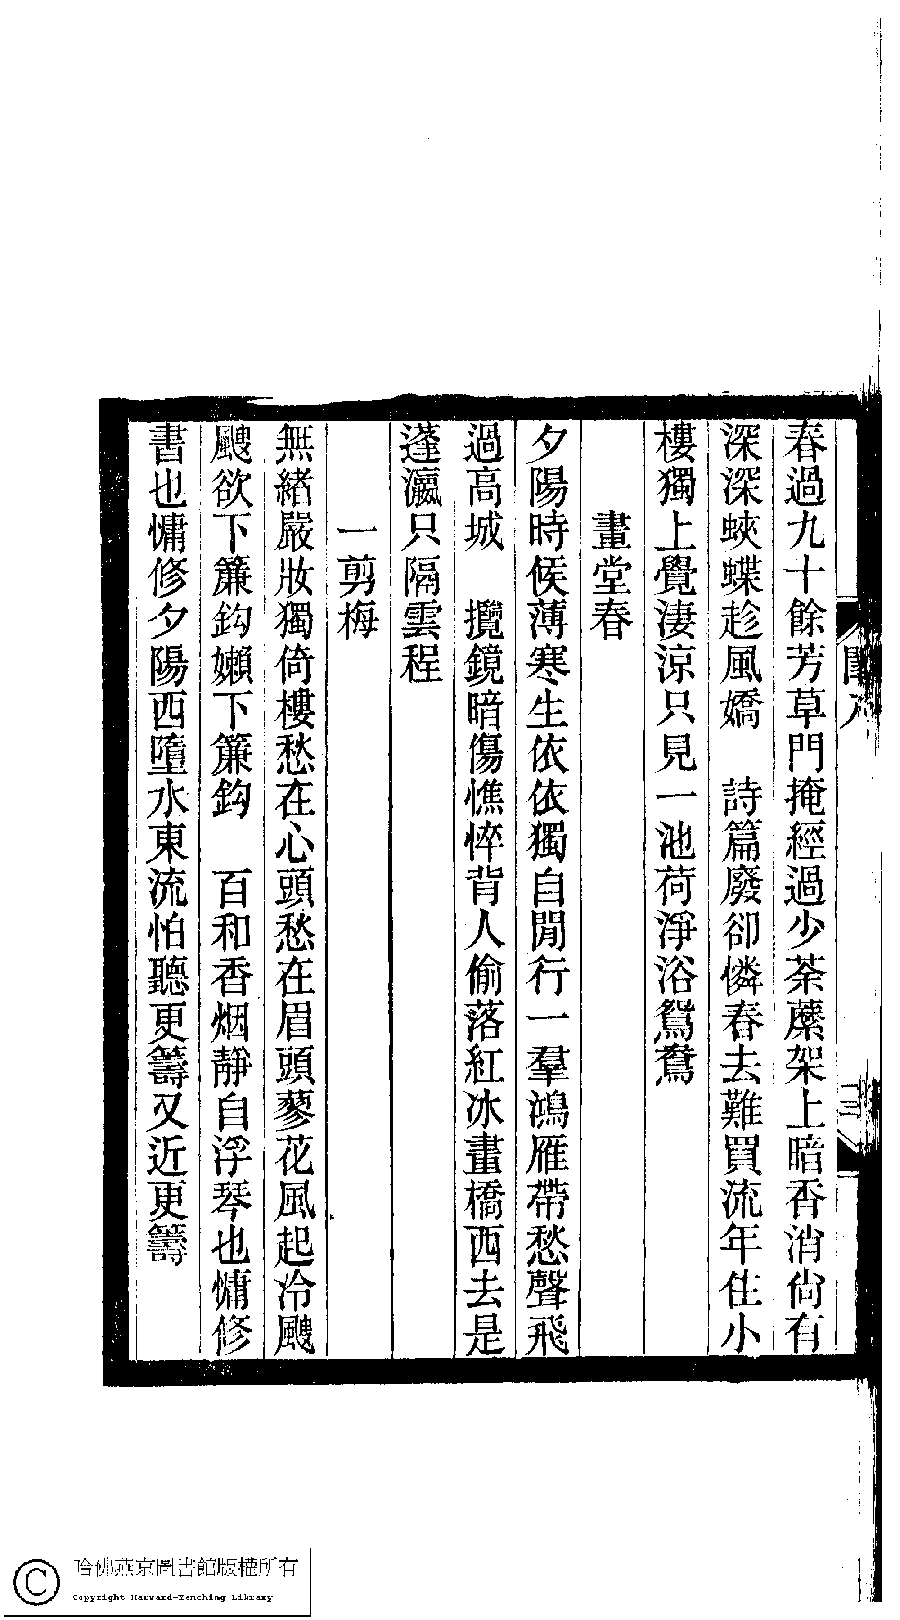 春過九十餘芳草門掩經過少荼蘼架上暗香消尙有
深深蛺蝶趁風嬌　詩篇廢卻憐春去難買流年住小
樓獨上覺淒涼只見一池荷淨浴鴛鴦
畫堂春
夕陽時候薄寒生依依獨自閒行一羣鴻雁帶愁聲飛
過高城　攬鏡暗傷憔悴背人偷落紅冰畫橋西去是
蓬瀛只隔雲程
一剪梅
無緒嚴妝獨倚樓愁在心頭愁在眉頭蓼花風起冷颼
颼欲下簾鈎嬾下簾鈎　百和香烟靜自浮琴也慵修
書也慵修夕陽西墮水東流怕聽更籌又近更籌
哈佛燕京圖書館版權所有
Copyright Harvard-Yenching Library